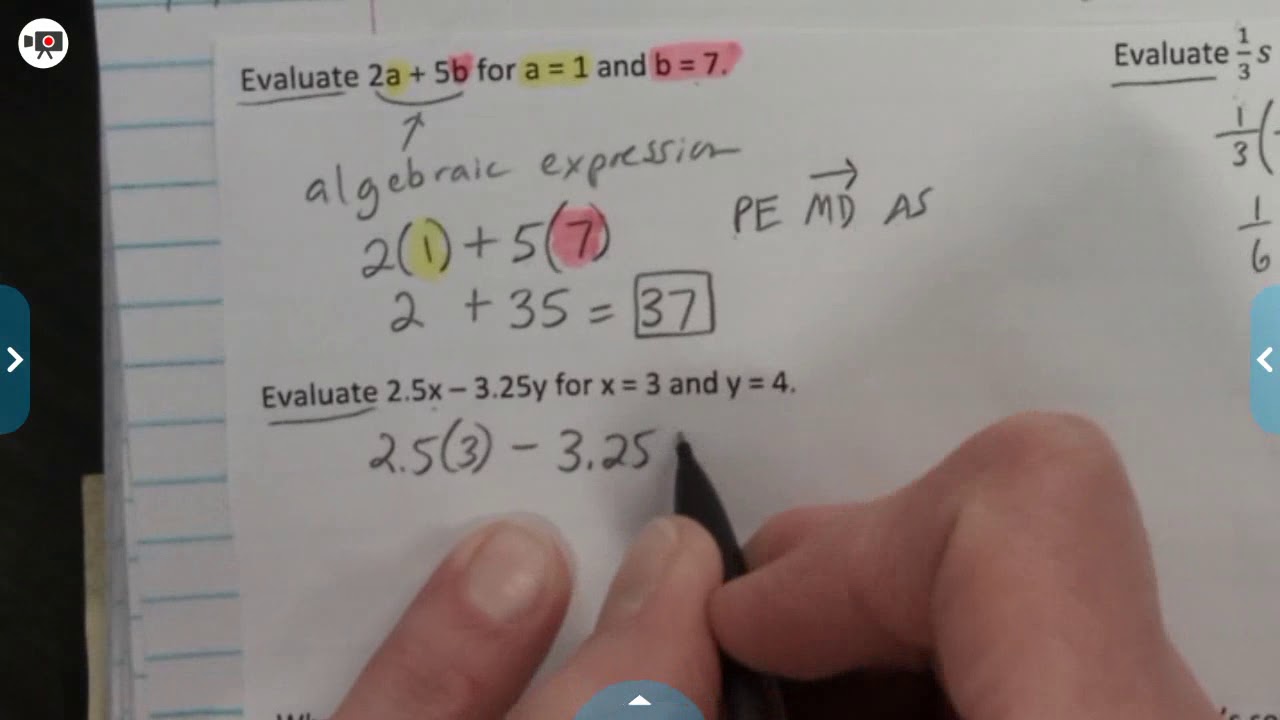 Evaluate 2a + 5b for a = 1 and b = 7.
algebraic expression
2(1) + 5(7)
2 + 35 = 37
PE MD AS
Evaluate 2.5x – 3.25y for x = 3 and y = 4.
2.5(3) - 3.25
Evaluate 1/3 s
1/3(
1/6